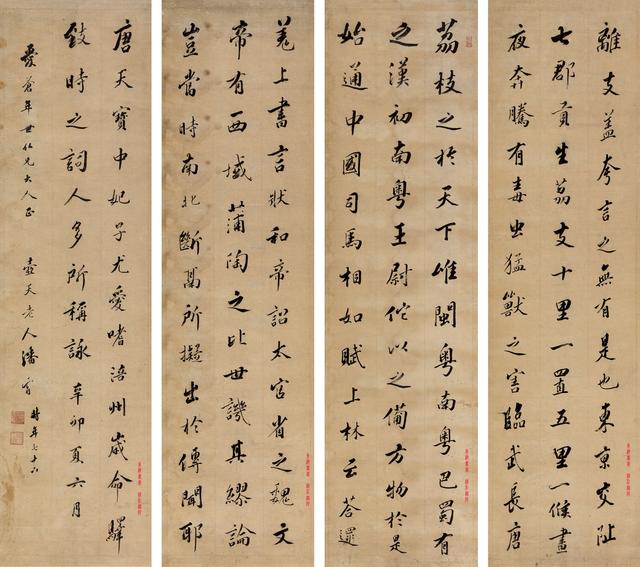 荔枝之於天下唯閩粵南粵巴蜀有
之漢初南粵王尉佗以之備方物於是
始通中國司馬相如賦上林云荅遝
離支蓋夸言之無有是也東京交阯
七郡貢生荔支十里一置五里一候晝
夜奔騰有毒虫猛獸之害臨武長唐
羌上書言狀和帝詔太官省之魏文
帝有西域蒲陶之比世譏其繆論
豈當時南北斷鬲所擬出於傳聞耶
唐天寶中妃子尤愛嗜涪州歲命驛
致時之詞人多所稱詠 辛卯夏六月
愛蒼年世仁兄大人正 壺天老人潘霨 時年七十六